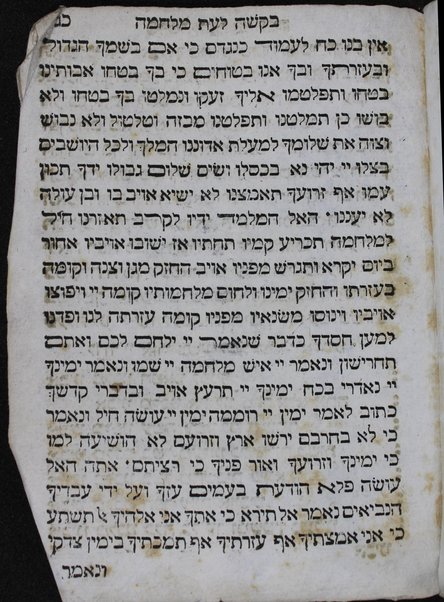 בקשה לעת מלחמה
אין בנו כח לעמוד כנגדם כי אם בשמך הגדול
ובעזרתך ובך אנו בטוחים כי בך בטחו אבותינו
בטחו ותפלטמו אליך זעקו ונמלטו בך בטחו ולא
בושו כן תמלטנו ותפלטנו מבזה וטלטול ולא נבוש
וצוה את שלומך למעלת אדוננו המלך ולכל היושבים
בצלו יי יהי נא בכסלו ושים שלום גבולו ידך תכון
עמו אף זרועך תאמצנו לא ישיא אויב בו ובן עולה
לא יעננו האל המלמד ידיו לקרב תאזרנו חיל
למלחמה תכריע קמיו תחתיו אז ישובו אויביו אחור
ביום יקרא ותגרש מפניו אויב החזק מגן וצנה וקומה
בעזרתו והחזק ימינו ולחום מלחמותיו קומה יי ויפוצו
אויביו וינוסו משנאיו מפניו קומה עזרתה לנו ופדנו
למען חסדך כדבר שנאמר יי ילחם לכם ואתם
תחרישון ונאמר יי איש מלחמה יי שמו ונאמר ימינך
יי נאדרי בכח ימינך יי תרעץ אויב ובדברי קדשך
כתוב לאמר ימין יי רוממה ימין יי עושה חיל ונאמר
כי לא בחרבם ירשו ארץ וזרועם לא הושיעה למו
כי ימינך וזרועך ואור פניך כי רציתם אתה האל
עושה פלא הודעת בעמים עזך ועל ידי עבדיך
הנביאים נאמר אל תירא כי אתך אני אל תשתע
כי אני אלהיך אמצתיך אף עזרתיך אף תמכתיך בימין צדקי
ונאמר